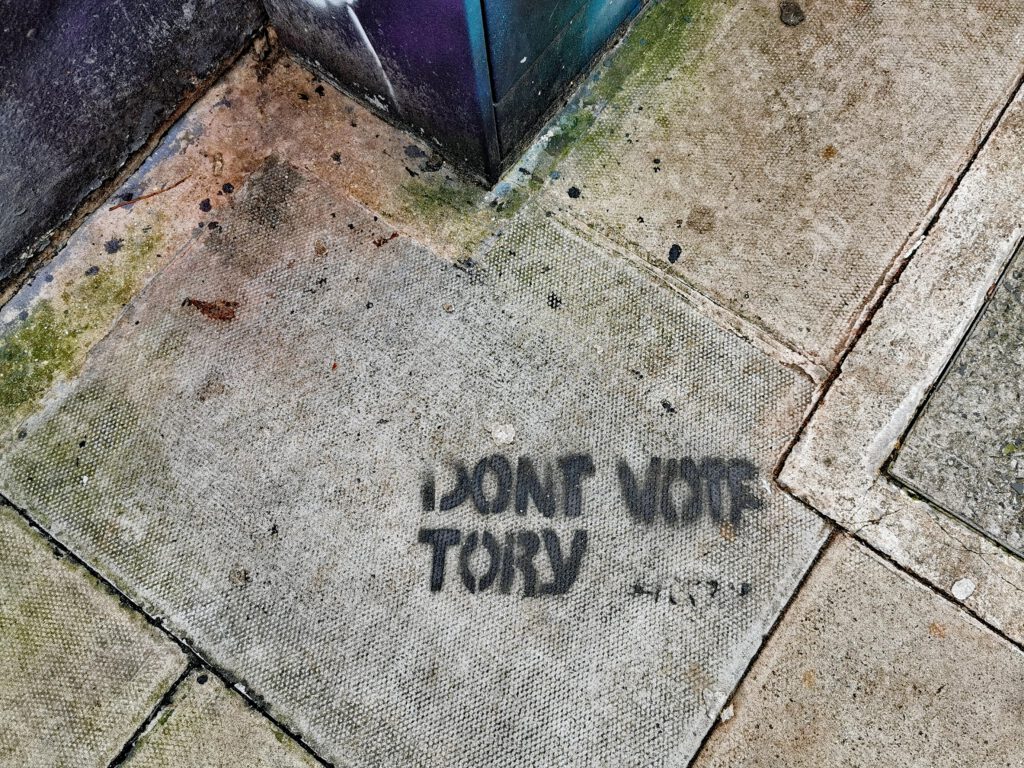 DONT VOTE
TORY